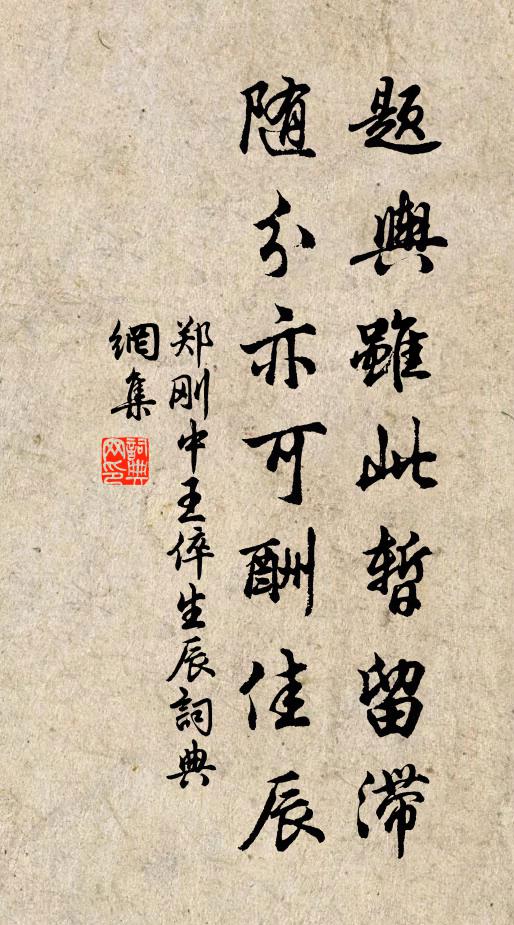 題輿雖此暫留滯
随分亦可酬佳辰
郑刚中王倅生辰詞典
網集
詞典網印